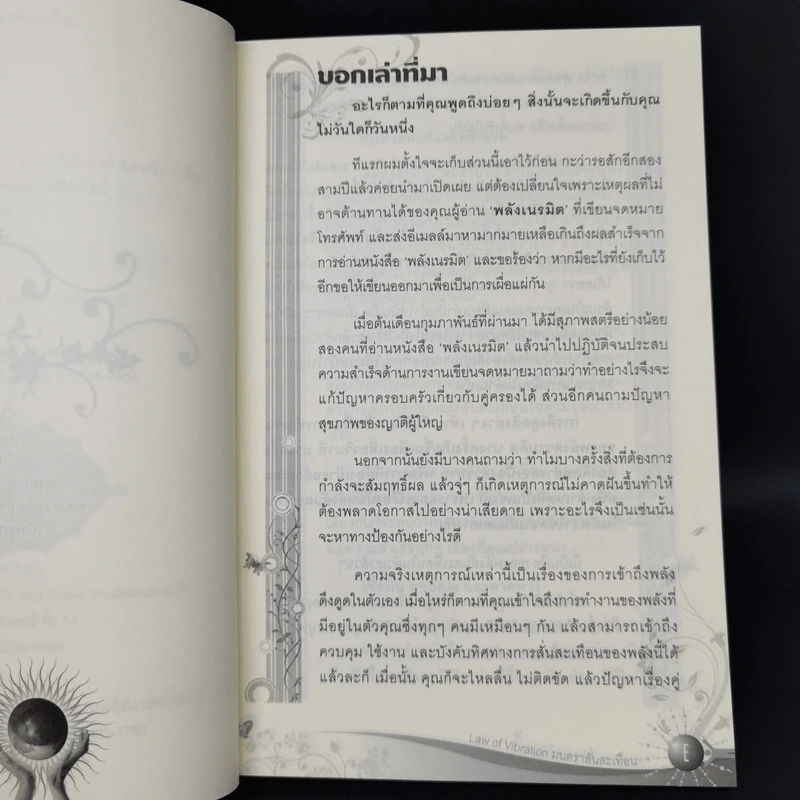 บอกเล่าที่มา
อะไรก็ตามที่คุณพูดถึงบ่อยๆ สิ่งนั้นจะเกิดขึ้นกับคุณ
ไม่วันใดก็วันหนึ่ง
ทีแรกผมตั้งใจจะเก็บส่วนนี้เอาไว้ก่อน กะว่ารอสักอีกสอง
สามปีแล้วค่อยนำมาเปิดเผย แต่ต้องเปลี่ยนใจเพราะเหตุผลที่ไม่
อาจต้านทานได้ของคุณผู้อ่าน 'พลังเนรมิต' ที่เขียนจดหมาย
โทรศัพท์ และส่งอีเมลล์มาหามากมายเหลือเกินถึงผลสำเร็จจาก
การอ่านหนังสือ 'พลังเนรมิต' และขอร้องว่า หากมีอะไรที่ยังเก็บไว้
อีกขอให้เขียนออกมาเพื่อเป็นการเผื่อแผ่กัน
เมื่อต้นเดือนกุมภาพันธ์ที่ผ่านมา ได้มีสุภาพสตรีอย่างน้อย
สองคนที่อ่านหนังสือ 'พลังเนรมิต' แล้วนำไปปฏิบัติจนประสบ
ความสำเร็จด้านการงานเขียนจดหมายมาถามว่าทำอย่างไรจึงจะ
แก้ปัญหาครอบครัวเกี่ยวกับคู่ครองได้ ส่วนอีกคนถามปัญหา
สุขภาพของญาติผู้ใหญ่
นอกจากนั้นยังมีบางคนถามว่า ทำไมบางครั้งสิ่งที่ต้องการ
กำลังจะสัมฤทธิ์ผล แล้วจู่ๆ ก็เกิดเหตุการณ์ไม่คาดฝันขึ้นทำให้
ต้องพลาดโอกาสไปอย่างน่าเสียดาย เพราะอะไรจึงเป็นเช่นนั้น
จะหาทางป้องกันอย่างไรดี
ความจริงเหตุการณ์เหล่านี้เป็นเรื่องของการเข้าถึงพลัง
ดึงดูดในตัวเอง เมื่อไหร่ก็ตามที่คุณเข้าใจถึงการทำงานของพลังที่
มีอยู่ในตัวคุณซึ่งทุกๆ คนมีเหมือนๆ กัน แล้วสามารถเข้าถึง
ควบคุม ใช้งาน และบังคับทิศทางการสั่นสะเทือนของพลังนี้ได้
แล้วละก็ เมื่อนั้น คุณก็จะไหลลื่น ไม่ติดขัด แล้วปัญหาเรื่องคู่
Law of Vibration มนตราสั่นสะเทือน